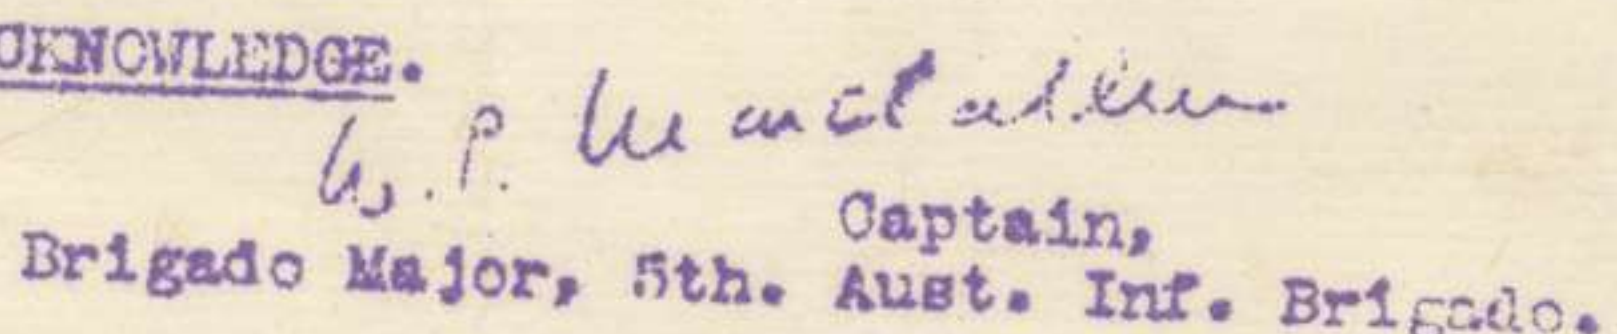 CKNOWLEDGE.
W. P. MacCallum
Captain,
Brigade Major, 5th. Aust. Inf. Brigade.